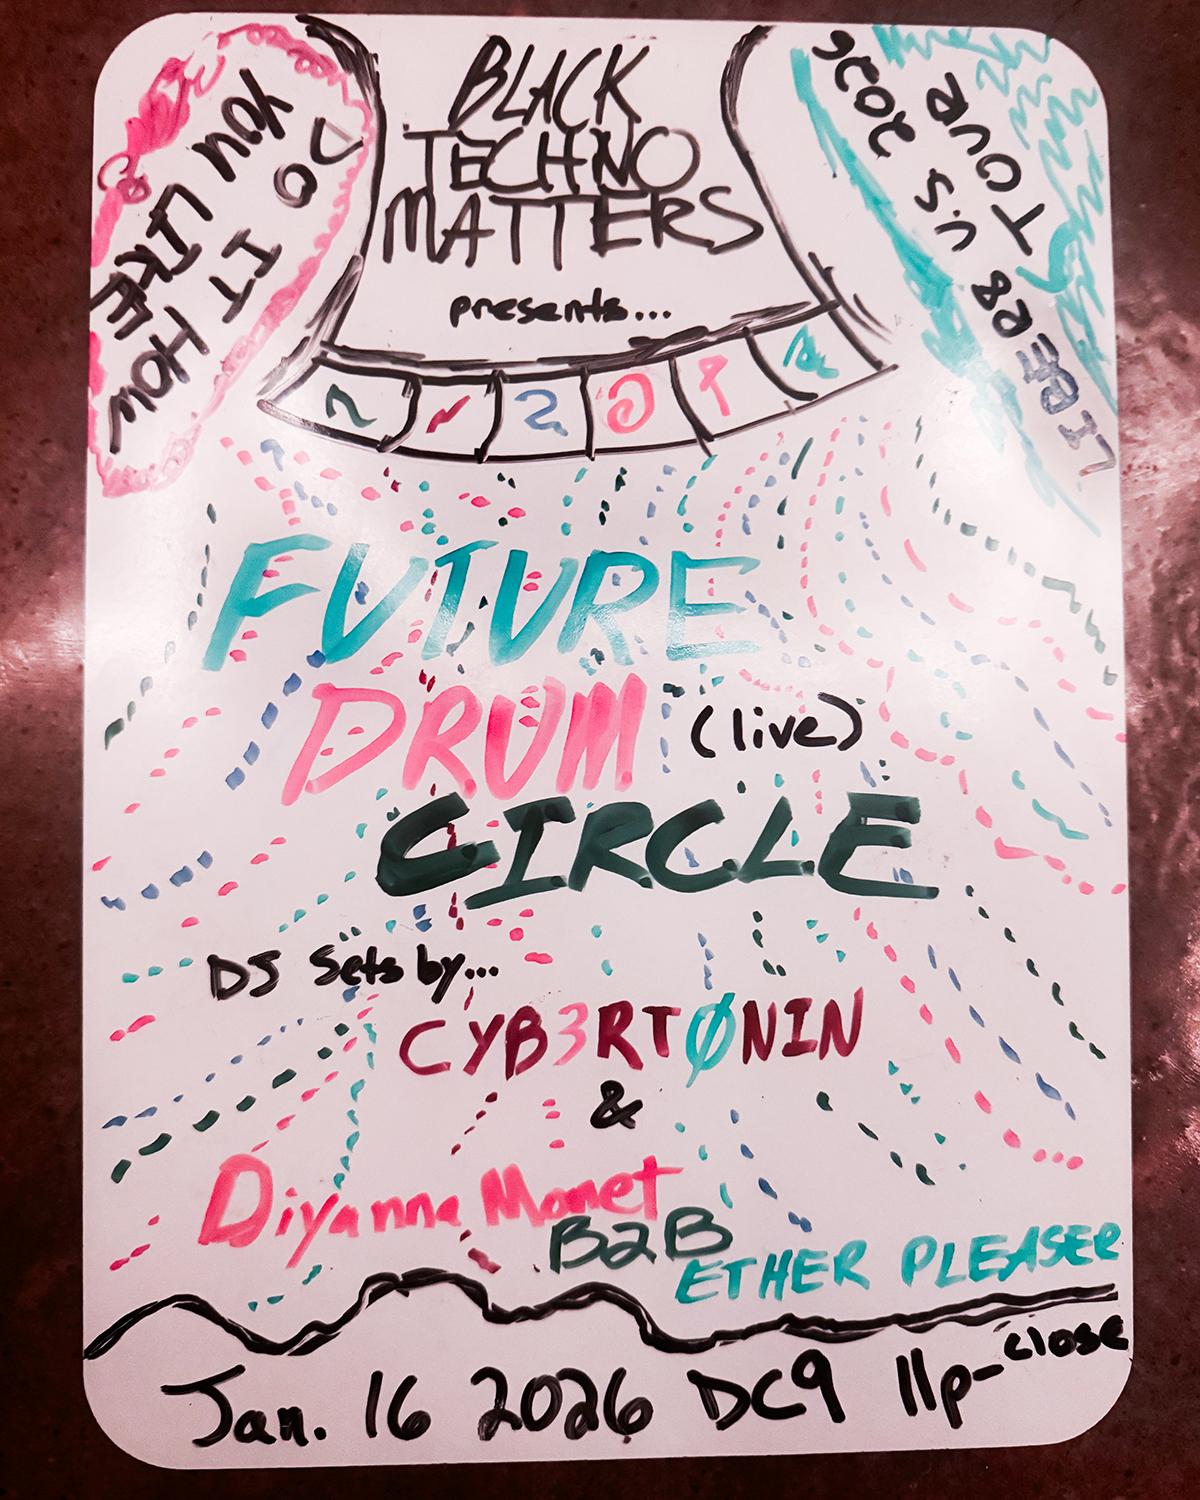 BLACK
TECHNO
MATTERS
presents...
DO
YOU LIKE
IT HOW
LIBER8
U.S 2026
TOUR
FUTURE
DRUM (live)
CIRCLE
DJ Sets by...
CYB3RTØNIN
&
Diyanna Monet
B2B
ETHER PLEASER
Jan. 16 2026 DC9 11p-close